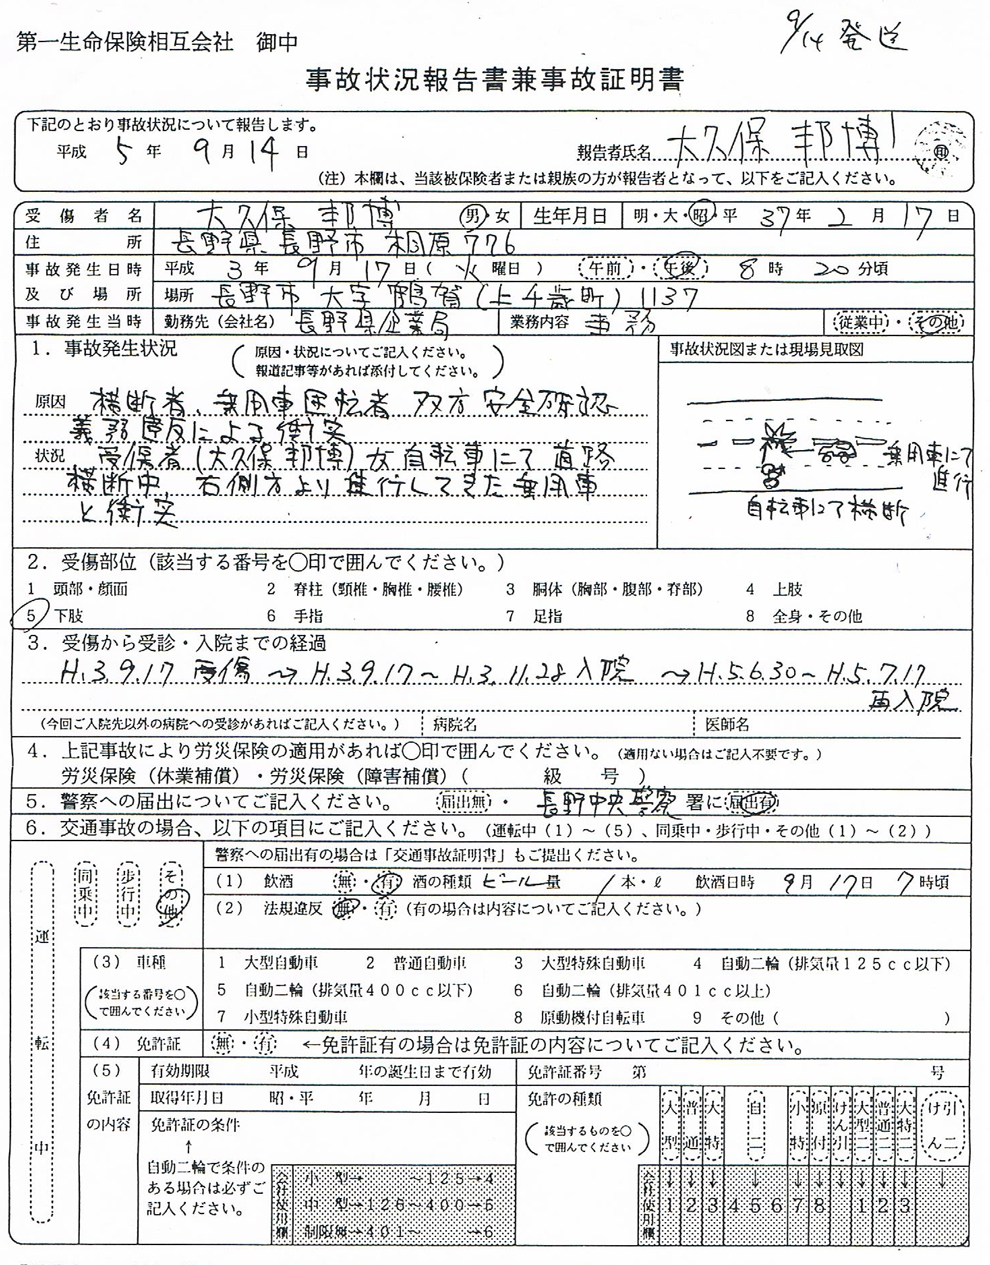 9/14 発送
第一生命保険相互会社 御中
事故状況報告書兼事故証明書
下記のとおり事故状況について報告します。
平成 5 年 9 月 14 日
報告者氏名 大久保 邦博 印
(注)本欄は、当該被保険者または親族の方が報告者となって、以下をご記入ください。
受傷者名 大久保 邦博 男・女 生年月日 明・大・昭・平 37年 2 月 17 日
住所 長野県 長野市 相原 776
事故発生日時 平成 3 年 9 月 17 日( 火 曜日) 午前・午後 8 時 20 分頃
及び場所 場所 長野市 大字 鶴賀(上千歳町)1137
事故発生当時 勤務先(会社名) 長野県企業局 業務内容 事務 従業中・その他
1.事故発生状況 (原因・状況についてご記入ください。
報道記事等があれば添付してください。)
事故状況図または現場見取図
原因 横断者、乗用車運転者 双方 安全確認
義務違反による衝突
状況 受保者(大久保邦博)女自転車にて道路
横断中 右側方より進行してきた乗用車
と衝突
乗用車にて
進行
自転車にて横断
2.受傷部位(該当する番号を○印で囲んでください。)
1 頭部・顔面 2 脊柱(頸椎・胸椎・腰椎) 3 胴体(胸部・腹部・脊部) 4 上肢
5 下肢 6 手指 7 足指 8 全身・その他
3.受傷から受診・入院までの経過
H.3.9.17 受傷 → H.3.9.17~H.3.11.28入院 → H.5.6.30~H.5.7.17
再入院
(今回ご入院先以外の病院への受診があればご記入ください。) 病院名 医師名
4.上記事故により労災保険の適用があれば○印で囲んでください。(適用ない場合はご記入不要です。)
労災保険(休業補償)・労災保険(障害補償)( 級 号 )
5.警察への届出についてご記入ください。 届出無・ 長野中央警察 署に 届出有
6.交通事故の場合、以下の項目にご記入ください。(運転中(1)~(5)、同乗中・歩行中・その他(1)~(2))
運転中
同乗中
歩行中
その他
警察への届出有の場合は「交通事故証明書」もご提出ください。
(1) 飲酒 無・有 酒の種類 ビール 量 1 本・ℓ 飲酒日時 9月 17日 7時頃
(2) 法規違反 無・有 (有の場合は内容についてご記入ください。)
(3) 車種
(該当する番号を○で囲んでください)
1 大型自動車 2 普通自動車 3 大型特殊自動車 4 自動二輪(排気量125cc以下)
5 自動二輪(排気量400cc以下) 6 自動二輪(排気量401cc以上)
7 小型特殊自動車 8 原動機付自転車 9 その他( )
(4) 免許証 無・有 ←免許証有の場合は免許証の内容についてご記入ください。
(5)
免許証
の内容
有効期限 平成 年の誕生日まで有効 免許証番号 第 号
取得年月日 昭・平 年 月 日
免許の種類
(該当するものを○で囲んでください)
大型 普通 大特 自二 小特 原付 けん引 大型二 普通二 大特二 けん引二
免許証の条件
↑
自動二輪で条件の
ある場合は必ずご
記入ください。
会社使用欄
小型→ ~125→4
中型→126~400→5
制限無→401~ →6
会社使用欄
↓ ↓ ↓ ↓ ↓ ↓ ↓ ↓ ↓ ↓
1 2 3 4 5 6 7 8 1 2 3